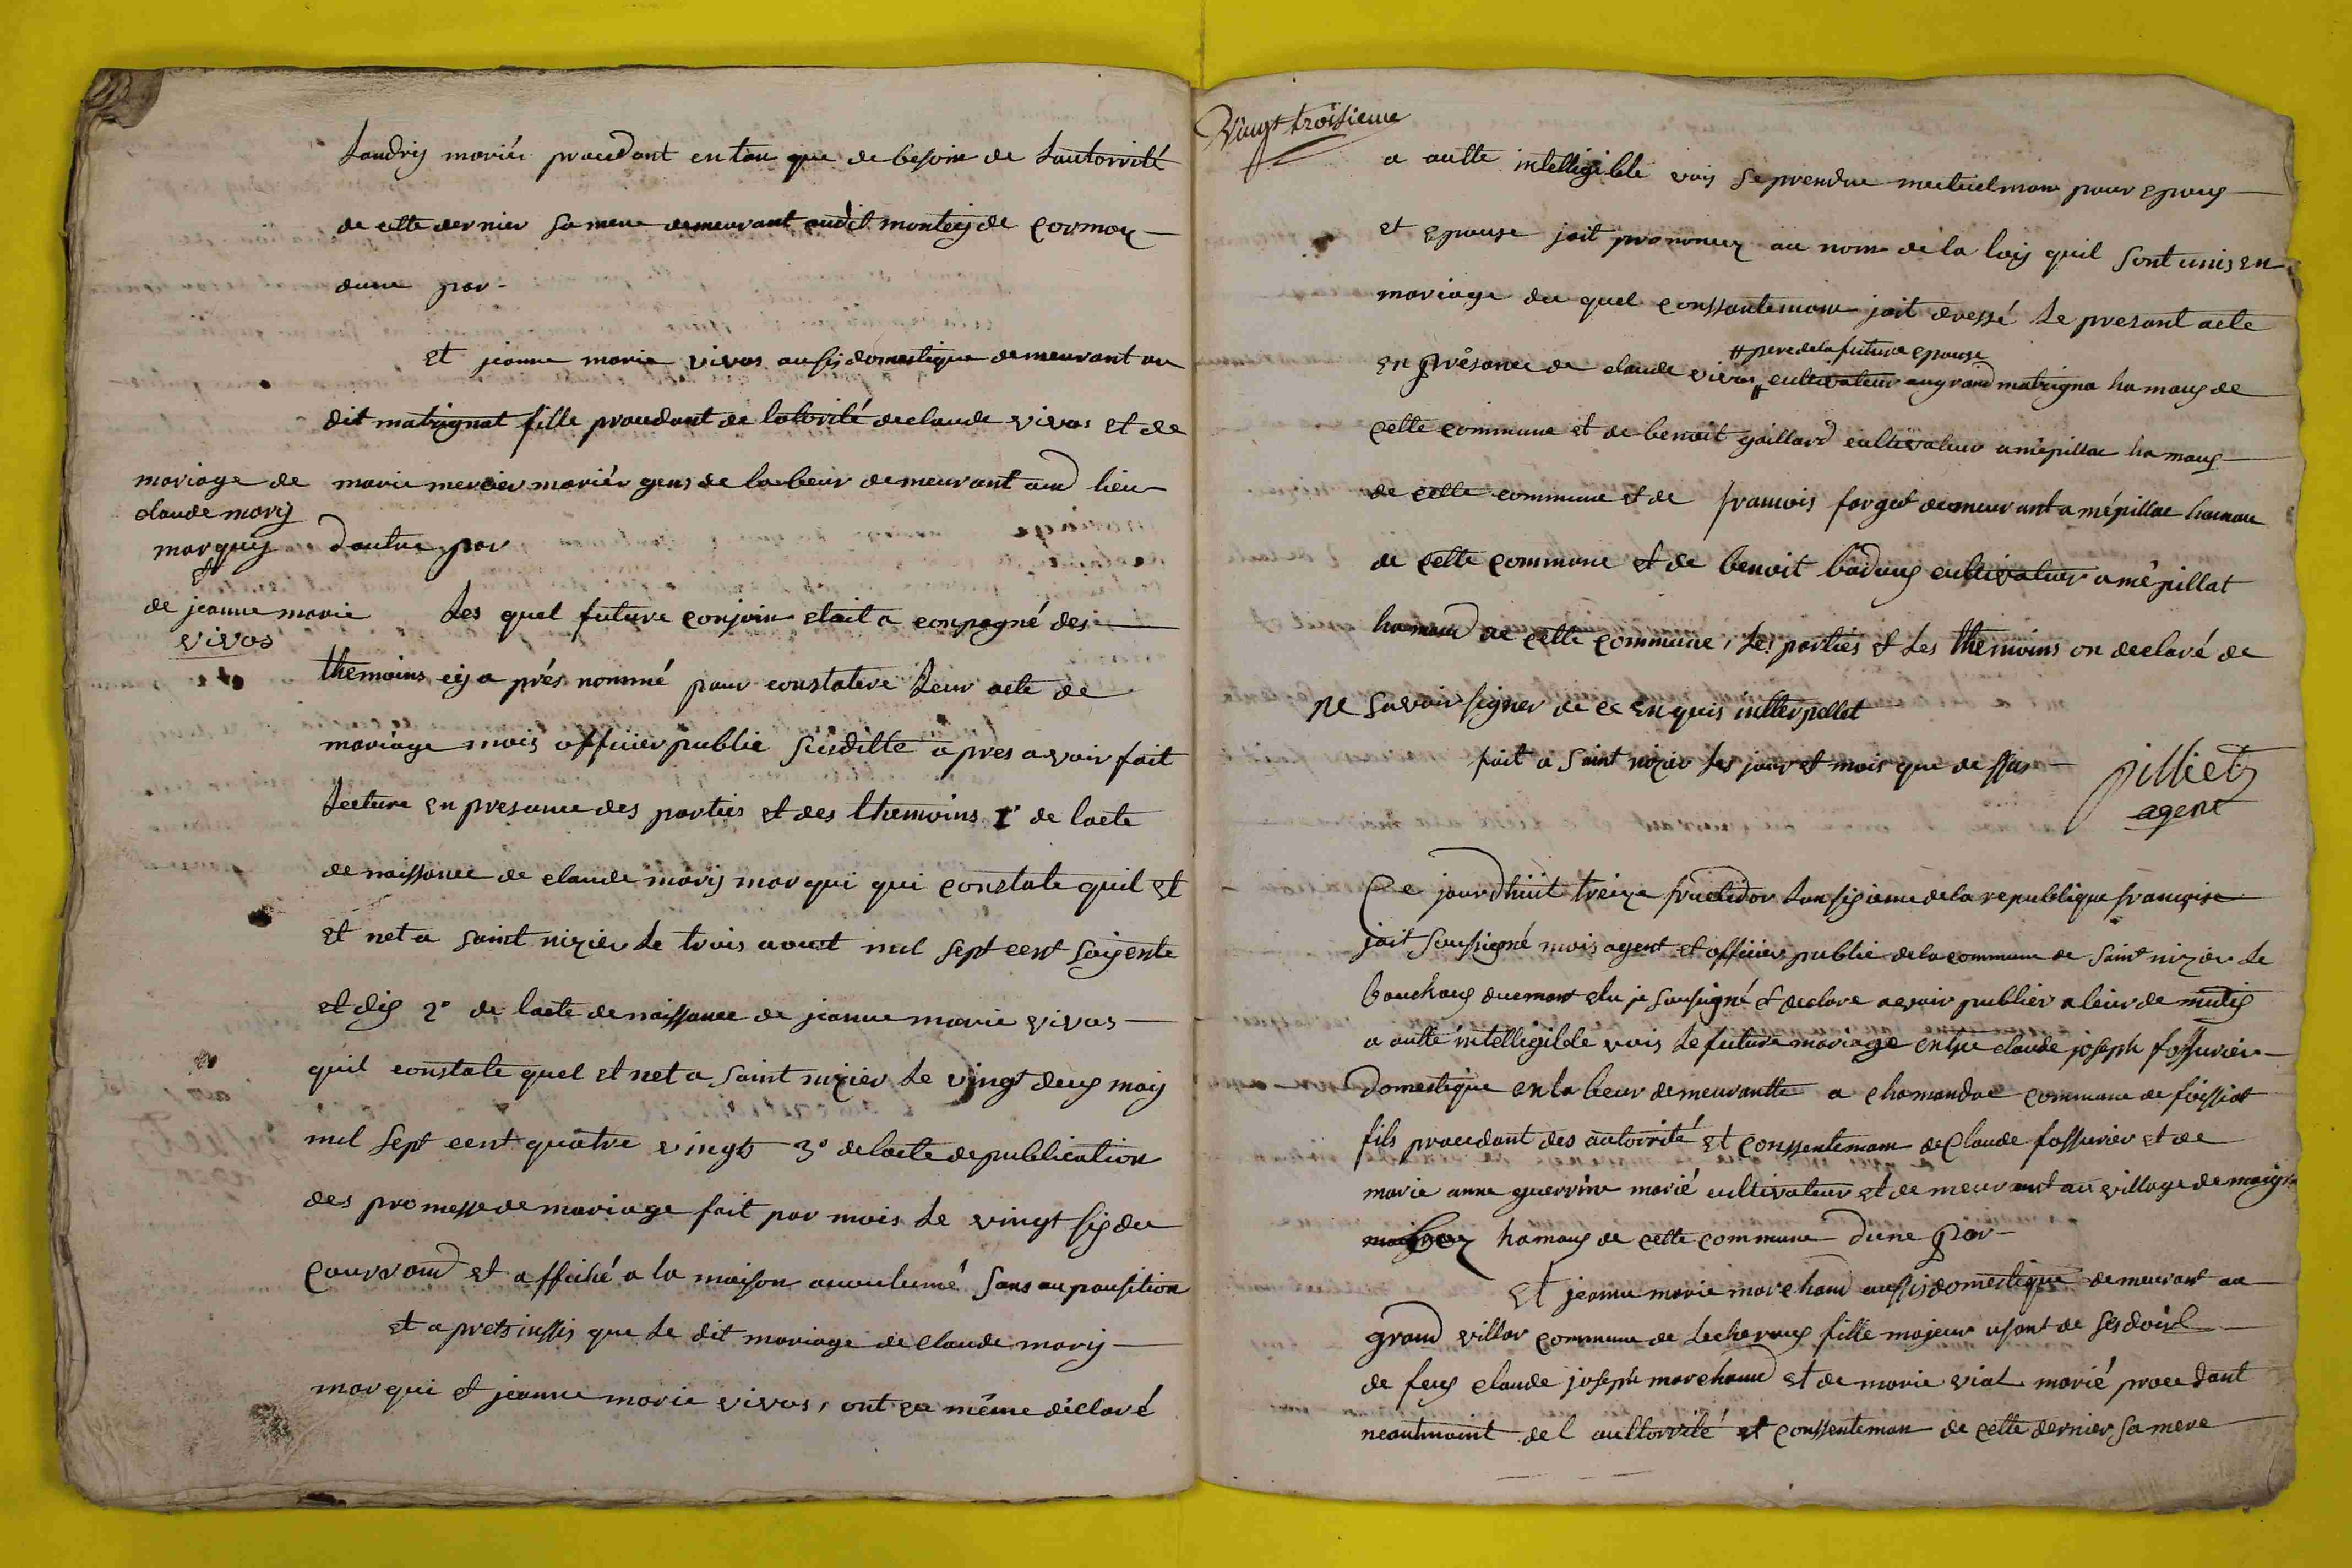 Landrij mariér procedant en tou que de besoin de Lautorrité
de cette dernier sa mere demeurant audit monteij de Cormox
dune par
Et jeanne marie vivas ausis domestique demeurant au
dit matrignat fille procedant de latorité de claude vivas et de
mariage de
claude marij
marquij
et
de jeanne marie
vivas
marie mercier mariér gens de labeur demeurant aud lieu
dautre par
Les quel future conjoin etait a compagné des
themoins cij a prés nommé pour constatere Leur acte de
mariage mois officier public susditte apres avoir fait
Lecture en presance des parties et des themoins 1° de lacte
de naissance de claude marij marqui qui constate quil et
et net a saint nizier Le trois aout mil sept cent soijente
et dis 2° de lacte de naissance de jeanne marie vivas
quil constate quel et net a saint nizier Le vingt deux maij
mil sept cent quatre vingt 3° de lacte de publication
des promesse de mariage fait par mois Le vingt sis du
Courrand et affiché a la maison acoutumé sans au pousition
et a prets inssis que Le dit mariage de claude marij
marqui et jeanne marie vivas, ont eu même déclaré
Vingt troisieme
a autte intelligible vois se prendre mutuelman pour epoux
et epouse jait prononcez au nom de la loij quil sont unis en
mariage du quel conssanteman jait dressé Le presant acte
pere de la future epouse
En présance de claude vivas cultivateur au grand matrigna hamaux de
cette commune et de benoit gaillard cultivateur a mépillac hamaux
de cette commune et de francois forget demeurant a mépillac hamau
de cette commune et de benoit badoux cultivateur a mépillat
hamaud de cette commune, Les parties et Les themoins on declaré de
ne savoir signer de ce enquis intterpellet
fait a saint nizier Les jour et mois que de ssus
pilliet
agent
Ce jourdhuit treize fructidor Lan sisieme de la republique francoise
jait sousigné mois agent et officier public de la commune de saint nizier Le
bouchoux duemant elu je sousigné et declare avoir publier a leur de midis
a autte intelligible vois Le future mariage entre claude joseph fossurier
Domestique en labeur demeurantte a chamandre commune de foissiat
fils procedant des autorrité et conssenteman de Claude fossurier et de
marie anne guerrin marié cultivateur et demeurant au village de
hamaux de cette commune dune par
Et jeanne marie marchand aussis domestique demeurant au
grand villar commune de Lecheroux fille majeur usant de ses doirl
de feux claude joseph marchand et de marie vial marié procedant
neantmoint del aultorrité et conssenteman de cette dernier sa mere